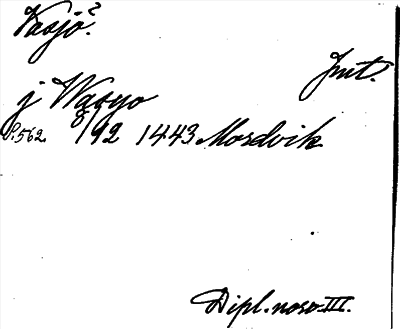 Vasjö?
Jmt.
j Wasyo
S. 562. 8/12 1443 Mordvik
Dipl. norv. III.